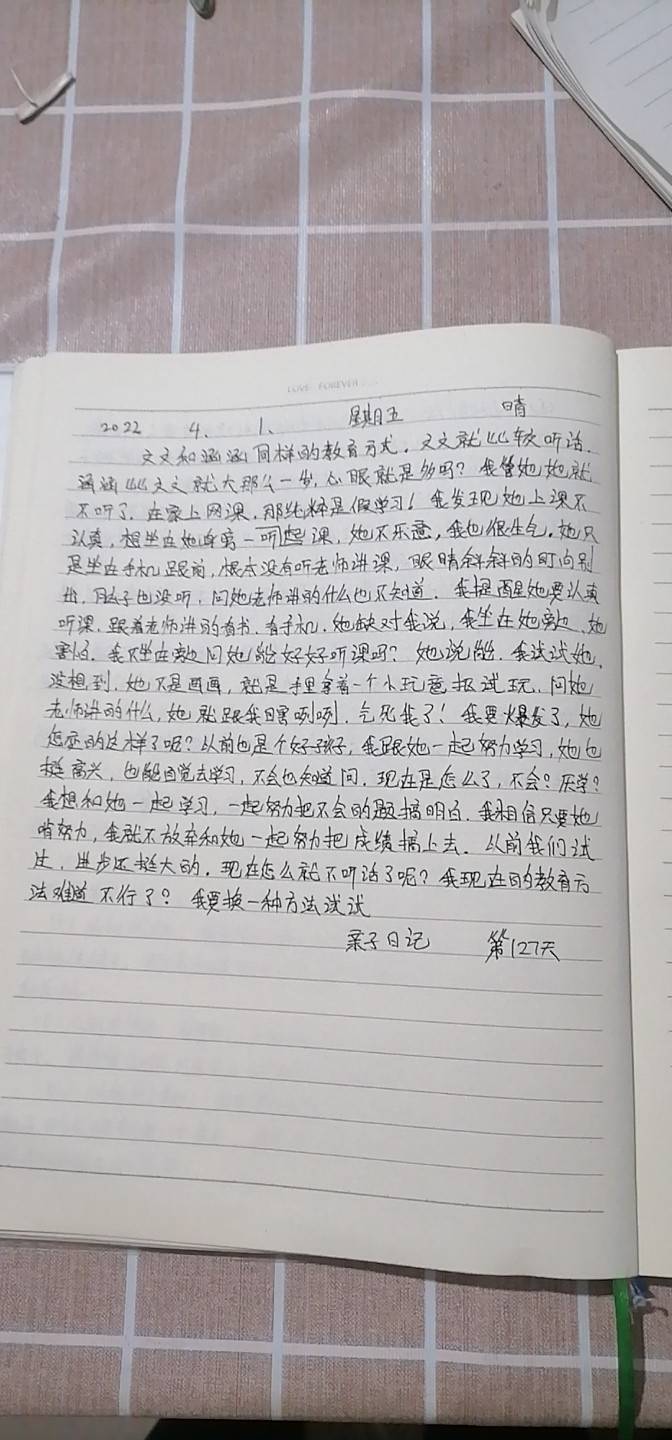 LOVE FOREVER
2022 4. 1. 星期五 晴
文文和涵涵同样的教育方式。文文就比较听话.
涵涵比文文就大那么一岁,心眼就是多吗?我管她她就
不听了。在家上网课,那纯粹是假学习!我发现她上课不
认真,想坐在她身旁一听起课,她不乐意,我也很生气。她只
是坐在手机跟前,根本没有听老师讲课,眼睛斜斜的时间别
处,脑子也没听,问她老师讲的什么也不知道。我提醒是她要认真
听课,跟着老师讲的看书、看手机。她缺对我说,我坐在她旁边、她
害怕。我不坐在旁边问她能好好听课吗?她说能。我试试她,
没想到,她不是画画,就是手里拿着一个小玩意抠试玩、问她
老师讲的什么,她就跟我嘻咧咧,气死我了!我要爆发了,她
怎变的这样了呢?以前也是个好孩子,我跟她一起努力学习,她也
挺高兴,也能自觉去学习,不会也知道问,现在是怎么了,不会?厌学?
我想和她一起学习,一起努力把不会的题搞明白。我相信只要她
肯努力,我就不放弃和她一起努力把成绩搞上去。从前我们试
过,进步还挺大的,现在怎么就不听话了呢?我现在的教育方
法难道不行了?我要换一种方法试试
亲子日记 第127天